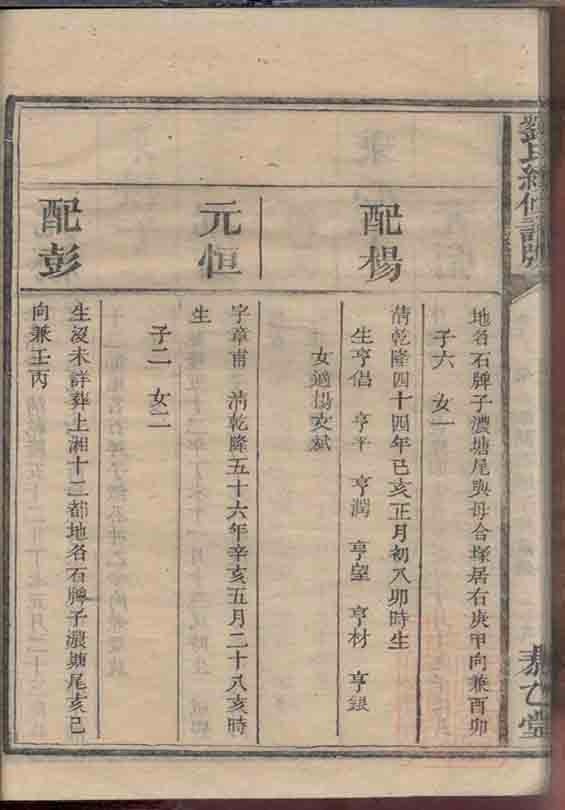 劉氏續修譜牒
地名石牌子濃塘尾與母合塚居右庚甲向兼酉卯
子六 女一
配楊
清乾隆四十四年己亥正月初八卯時生
生亨倡 亨平 亨潤 亨望 亨材 亨銀
女適楊文斌
元恒
字章甫 清乾隆五十六年辛亥五月二十八亥時
生
子二 女二
配彭
生沒未詳葬上湘十二都地名石牌子濃塘尾亥巳
向兼壬丙
堂